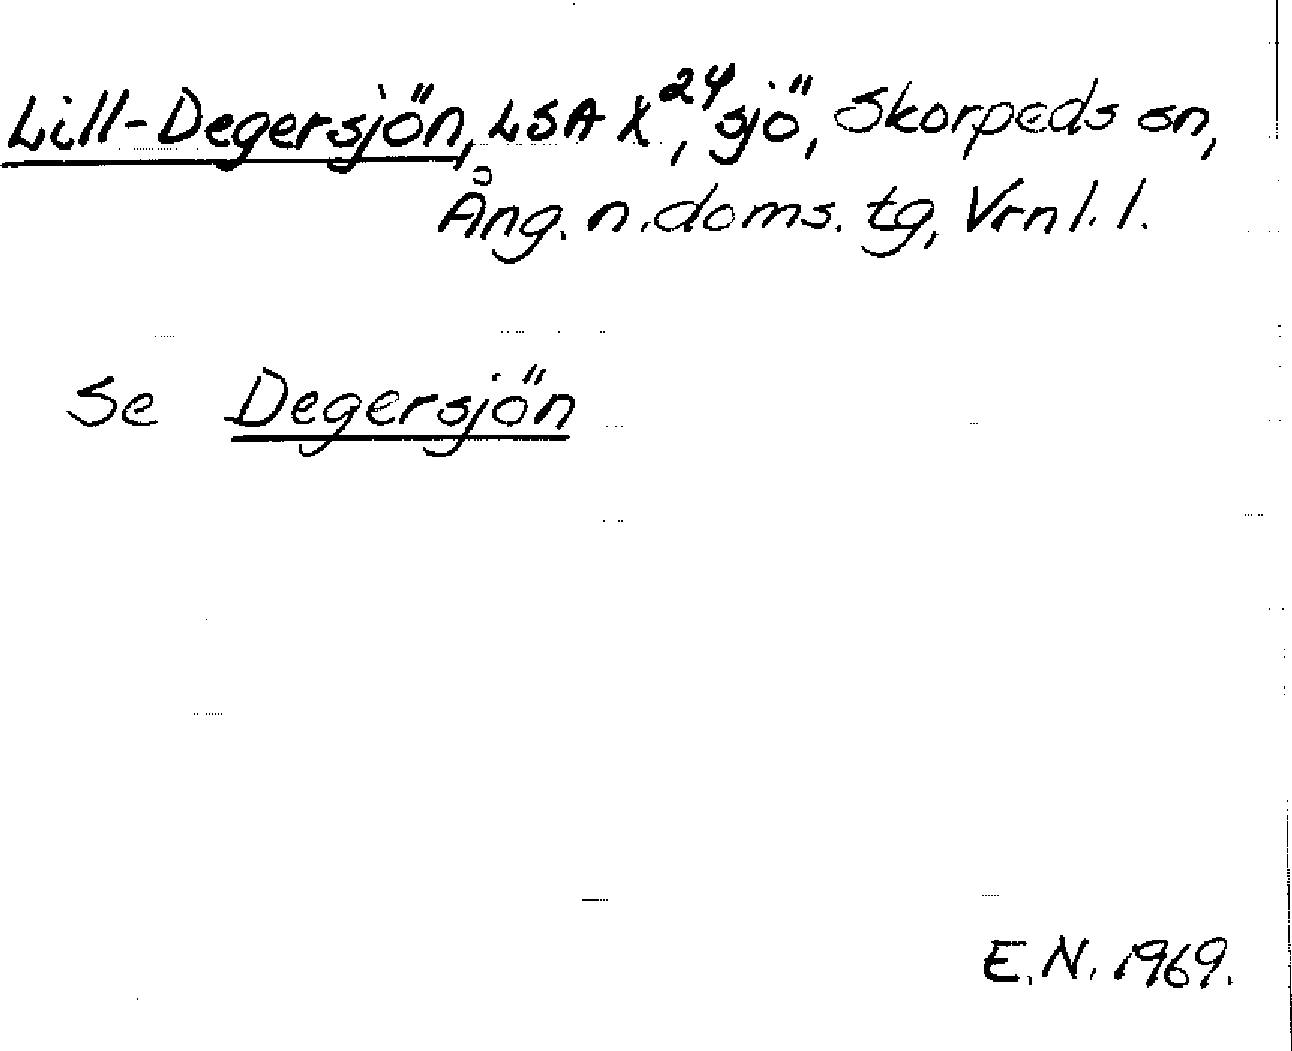 Lill-Degersjön, LSA X²⁴, sjö, Skorpeds sn,
Ång. n. doms. tg, Vrnl. l.
Se Degersjön
E.N. 1969.